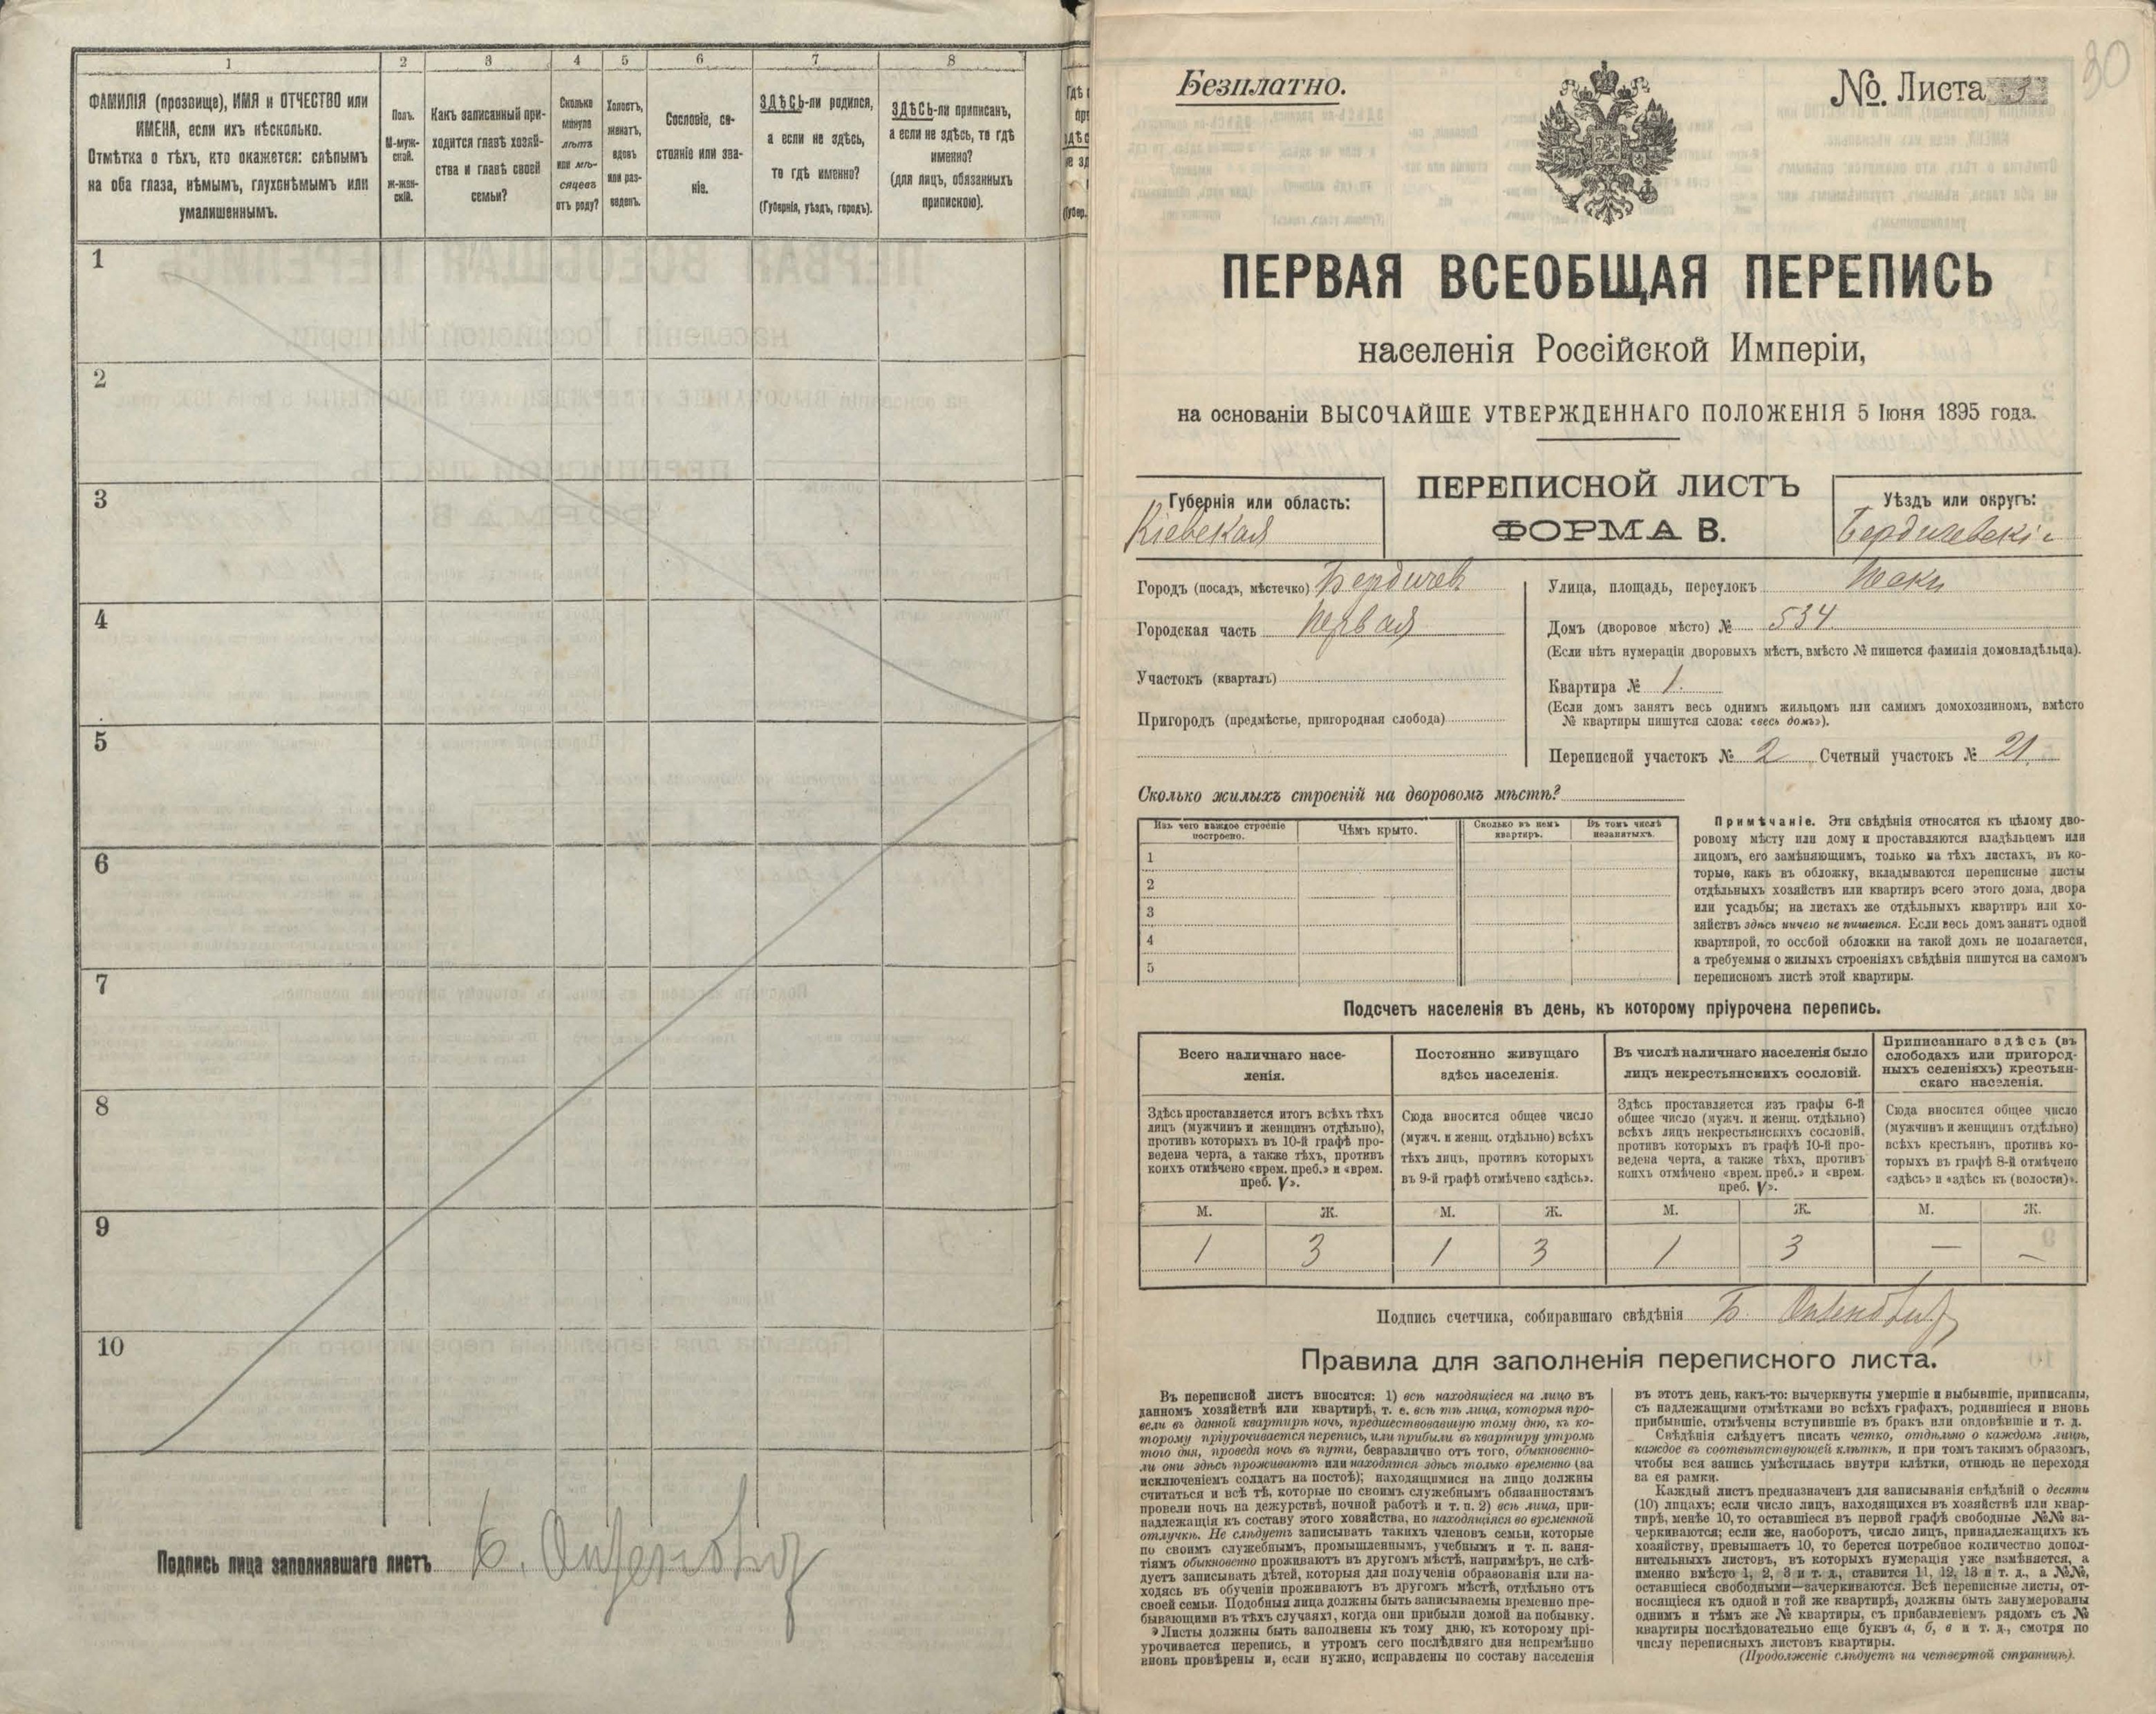 1
2
3
4
5
6
7
8
ФАМИЛІЯ (прозвище), ИМЯ и ОТЧЕСТВО или
ИМЕНА, если ихъ нѣсколько.
Отмѣтка о тѣхъ, кто окажется: слѣпымъ
на оба глаза, нѣмымъ, глухонѣмымъ или
умалишеннымъ.
Полъ.
М-муж-
ской.
Ж-жен-
скій.
Какъ записанный при-
ходится главѣ хозяй-
ства и главѣ своей
семьи?
Сколько
минуло
лѣтъ
или мѣ-
сяцевъ
отъ роду?
Холостъ,
женатъ,
вдовъ
или раз-
веденъ.
Сословіе, со-
стояніе или зва-
ніе.
ЗДѢСЬ-ли родился,
а если не здѣсь,
то гдѣ именно?
(Губернія, уѣздъ, городъ).
ЗДѢСЬ-ли приписанъ,
а если не здѣсь, то гдѣ
именно?
(для лицъ, обязанныхъ
припискою).
1
2
3
4
5
6
7
8
9
10
Подпись лица заполнявшаго листъ
30
Безплатно.
№. Листа 3
ПЕРВАЯ ВСЕОБЩАЯ ПЕРЕПИСЬ
населенія Россійской Имперіи,
на основаніи ВЫСОЧАЙШЕ УТВЕРЖДЕННАГО ПОЛОЖЕНІЯ 5 Іюня 1895 года.
Губернія или область:
Кіевская
ПЕРЕПИСНОЙ ЛИСТЪ
ФОРМА В.
Уѣздъ или округъ:
Бердичевскій
Городъ (посадъ, мѣстечко) Бердичев
Городская часть Первая
Участокъ (кварталъ)
Пригородъ (предмѣстье, пригородная слобода)
Улица, площадь, переулокъ
Домъ (дворовое мѣсто) № 534
(Если нѣтъ нумераціи дворовыхъ мѣстъ, вмѣсто № пишется фамилія домовладѣльца).
Квартира № 1.
(Если домъ занятъ весь однимъ жильцомъ или самимъ домохозяиномъ, вмѣсто
№ квартиры пишутся слова: «весь домъ»).
Переписной участокъ № 2 Счетный участокъ № 21
Сколько жилыхъ строеній на дворовомъ мѣстѣ?
Изъ чего каждое строеніе
построено.
Чѣмъ крыто.
Сколько въ немъ
квартиръ.
Въ томъ числѣ
незанятыхъ.
1
2
3
4
5
Примѣчаніе. Эти свѣдѣнія относятся къ цѣлому дво-
ровому мѣсту или дому и проставляются владѣльцемъ или
лицомъ, его замѣняющимъ, только на тѣхъ листахъ, въ ко-
торые, какъ въ обложку, вкладываются переписные листы
отдѣльныхъ хозяйствъ или квартиръ всего этого дома, двора
или усадьбы; на листахъ же отдѣльныхъ квартиръ или хо-
зяйствъ здѣсь ничего не пишется. Если весь домъ занятъ одной
квартирой, то особой обложки на такой домъ не полагается,
а требуемыя о жилыхъ строеніяхъ свѣдѣнія пишутся на самомъ
переписномъ листѣ этой квартиры.
Подсчетъ населенія въ день, къ которому пріурочена перепись.
Всего наличнаго насе-
ленія.
Постоянно живущаго
здѣсь населенія.
Въ числѣ наличнаго населенія было
лицъ некрестьянскихъ сословій.
Приписаннаго здѣсь (въ
слободахъ или пригород-
ныхъ селеніяхъ) крестьян-
скаго населенія.
Здѣсь проставляется итогъ всѣхъ тѣхъ
лицъ (мужчинъ и женщинъ отдѣльно),
противъ которыхъ въ 10-й графѣ про-
ведена черта, а также тѣхъ, противъ
коихъ отмѣчено «врем. преб.» и «врем.
преб. V».
Сюда вносится общее число
(мужч. и женщ. отдѣльно) всѣхъ
тѣхъ лицъ, противъ которыхъ
въ 9-й графѣ отмѣчено «здѣсь».
Здѣсь проставляется изъ графы 6-й
общее число (мужч. и женщ. отдѣльно)
всѣхъ лицъ некрестьянскихъ сословій,
противъ которыхъ въ графѣ 10-й про-
ведена черта, а также тѣхъ, противъ
коихъ отмѣчено «врем. преб.» и «врем.
преб. V».
Сюда вносится общее число
(мужчинъ и женщинъ отдѣльно)
всѣхъ крестьянъ, противъ ко-
торыхъ въ графѣ 8-й отмѣчено
«здѣсь» и «здѣсь къ (волости)».
М. Ж. М. Ж. М. Ж. М. Ж.
1 3 1 3 1 3 — —
Подпись счетчика, собиравшаго свѣдѣнія
Правила для заполненія переписного листа.
Въ переписной листъ вносятся: 1) всѣ находящіеся на лицо въ
данномъ хозяйствѣ или квартирѣ, т. е. всѣ тѣ лица, которыя про-
вели въ данной квартирѣ ночь, предшествовавшую тому дню, къ ко-
торому пріурочивается перепись, или прибыли въ квартиру утромъ
того дня, проведя ночь въ пути, безразлично отъ того, обыкновенно-
ли они здѣсь проживаютъ или находятся здѣсь только временно (за
исключеніемъ солдатъ на постоѣ); находящимися на лицо должны
считаться и всѣ тѣ, которые по своимъ служебнымъ обязанностямъ
провели ночь на дежурствѣ, ночной работѣ и т. п. 2) всѣ лица, при-
надлежащія къ составу этого хозяйства, но находящіяся во временной
отлучкѣ. Не слѣдуетъ записывать такихъ членовъ семьи, которые
по своимъ служебнымъ, промышленнымъ, учебнымъ и т. п. заня-
тіямъ обыкновенно проживаютъ въ другомъ мѣстѣ, напримѣръ, не слѣ-
дуетъ записывать дѣтей, которыя для полученія образованія или на-
ходясь въ обученіи проживаютъ въ другомъ мѣстѣ, отдѣльно отъ
своей семьи. Подобныя лица должны быть записываемы временно пре-
бывающими въ тѣхъ случаяхъ, когда они прибыли домой на побывку.
Листы должны быть заполнены къ тому дню, къ которому прі-
урочивается перепись, и утромъ сего послѣдняго дня непремѣнно
вновь провѣрены и, если нужно, исправлены по составу населенія
въ этотъ день, какъ-то: вычеркнуты умершіе и выбывшіе, приписаны,
съ надлежащими отмѣтками во всѣхъ графахъ, родившіеся и вновь
прибывшіе, отмѣчены вступившіе въ бракъ или овдовѣвшіе и т. д.
Свѣдѣнія слѣдуетъ писать четко, отдѣльно о каждомъ лицѣ,
каждое въ соотвѣтствующей клѣткѣ, и при томъ такимъ образомъ,
чтобы вся запись умѣстилась внутри клѣтки, отнюдь не переходя
за ея рамки.
Каждый листъ предназначенъ для записыванія свѣдѣній о десяти
(10) лицахъ; если число лицъ, находящихся въ хозяйствѣ или квар-
тирѣ, менѣе 10, то оставшіеся въ первой графѣ свободные №№ за-
черкиваются; если же, наоборотъ, число лицъ, принадлежащихъ къ
хозяйству, превышаетъ 10, то берется потребное количество допол-
нительныхъ листовъ, въ которыхъ нумерація уже измѣняется, а
именно вмѣсто 1, 2, 3 и т. д., ставится 11, 12, 13 и т. д., а №№,
оставшіеся свободными—зачеркиваются. Всѣ переписные листы, от-
носящіеся къ одной и той же квартирѣ, должны быть занумерованы
однимъ и тѣмъ же № квартиры, съ прибавленіемъ рядомъ съ №
квартиры послѣдовательно еще буквъ а, б, в и т. д., смотря по
числу переписныхъ листовъ квартиры.
(Продолженіе слѣдуетъ на четвертой страницѣ).